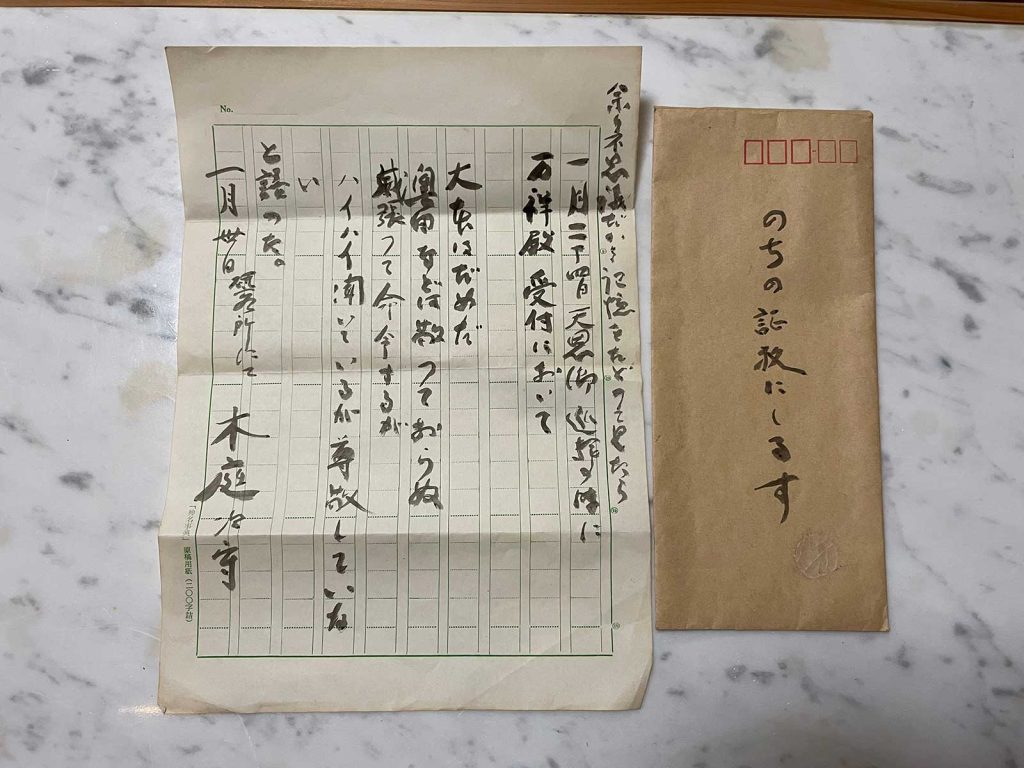 余り不思議だから記憶をたどつて見たら
一月二十四日 天恩郷 巡拝の時に
万祥殿 受付において
大本はだめだ
奥田などは敬つておらぬ
威張つて命令するが
ハイハイ聞いているが尊敬していな
い
と語つた。
一月卅日 所にて 木庭次守
No.
原稿用紙(二〇〇字詰)
のちの証拠にしるす